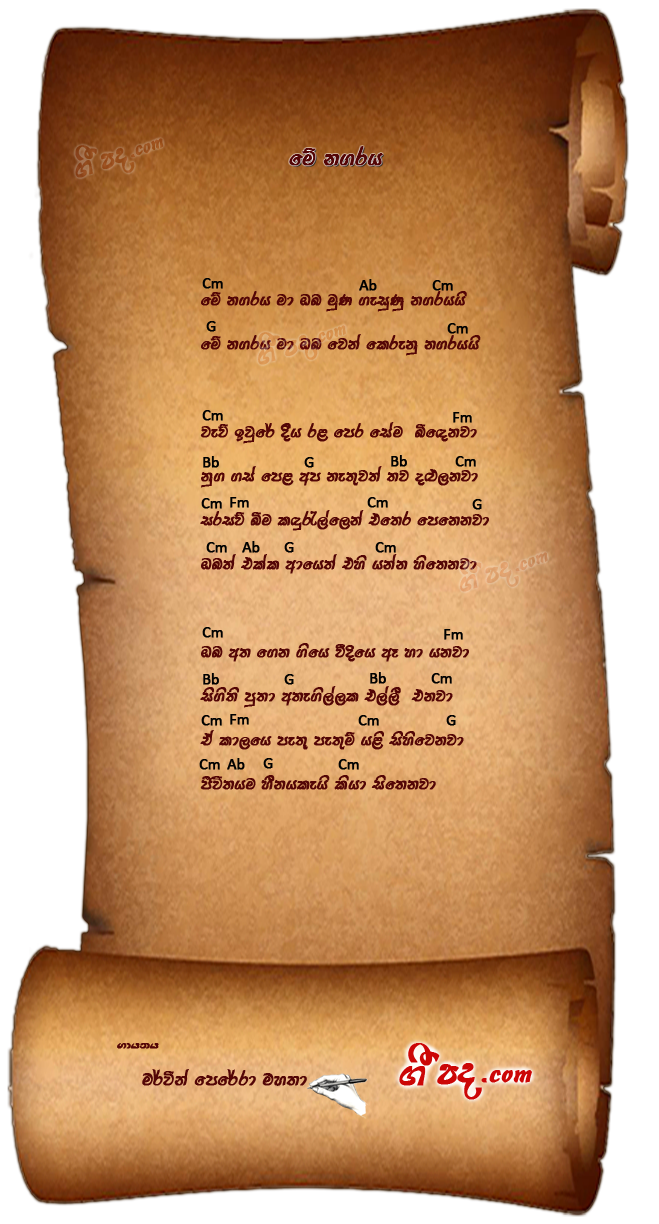 ගී පද.com
මේ නගරය
Cm Ab Cm
මේ නගරය මා ඔබ මුණ ගැසුණු නගරයයි
G Cm
මේ නගරය මා ඔබ වෙන් කෙරුනු නගරයයි
ගී පද.com
Cm Fm
වැව් ඉවුරේ දිය රළ පෙර සේම බිඳෙනවා
Bb G Bb Cm
නුග ගස් පෙළ අප නැතුවත් තව දළුලනවා
Cm Fm Cm G
සරසවි බිම කඳුරැල්ලෙන් එතෙර පෙනෙනවා
Cm Ab G Cm
ඔබත් එක්ක ආයෙත් එහි යන්න හිතෙනවා
ගී පද.com
Cm Fm
ඔබ අත ගෙන ගියෙ වීදියෙ ඈ හා යනවා
Bb G Bb Cm
සිගිති පුතා අතැගිල්ලක එල්ලී එනවා
Cm Fm Cm G
ඒ කාලයෙ පැතු පැතුම් යළි සිහිවෙනවා
Cm Ab G Cm
ජීවිතයම හීනයකැයි කියා සිතෙනවා
ගායනය
මර්වින් පෙරේරා මහතා
ගී පද.com